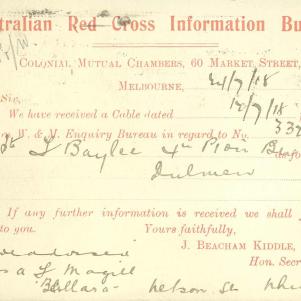 tralian Red Cross Information Bu
COLONIAL MUTUAL CHAMBERS, 60 MARKET STREET,
MELBOURNE, 24/7/18
Sir,
We have received a Cable dated 19/7/18
W. & M. Enquiry Bureau in regard to No. 33
Baylee 4th Pion B
Dulmen
If any further information is received we shall
to you. Yours faithfully,
J. BEACHAM KIDDLE,
Hon. Secr
L Magill
Nelson St